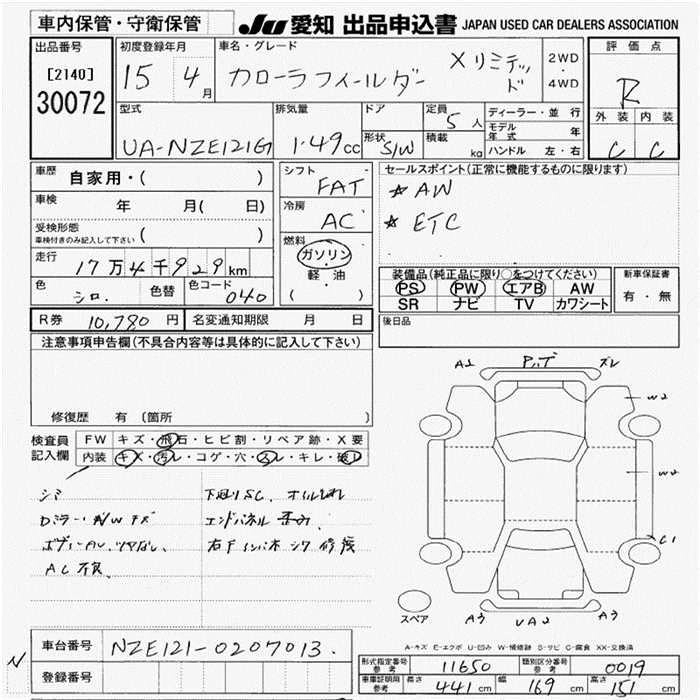 車内保管・守衛保管
JU 愛知 出品申込書 JAPAN USED CAR DEALERS ASSOCIATION
出品番号
[2140]
30072
初度登録年月
15 4月
車名・グレード
カローラフィールダー
Xリミテッド
2WD
・
4WD
評価点
R
外装 内装
C C
型式
UA-NZE121G
排気量
1.49cc
ドア
形状
S/W
定員
5人
積載
kg
ディーラー・並 行
モデル年式 年
ハンドル 左・右
車歴
自家用・( )
車検
年 月( 日)
受検形態
車検付きのみ記入して下さい ( )
走行
17万4千929km
色
シロ.
色替
色コード
040
シフト
FAT
冷房
AC
燃料
ガソリン
・
軽・油
( )
セールスポイント(正常に機能するものに限ります)
☆AW
☆ETC
装備品(純正品に限り○をつけてください)
PS PW エアB AW
SR ナビ TV カワシート
新車保証書
有・無
後日品
R券 10,780円
名変通知期限 月 日
注意事項申告欄(不具合内容等は具体的に記入して下さい)
修復歴 有 〔箇所 〕
検査員
記入欄
FW キズ・飛石・ヒビ割・リペア跡・X要
内装 キズ・汚レ・コゲ・穴・スレ・キレ・破レ
シミ
AC不良
下廻りSC. オイルもれ
エンドパネル 歪み.
A2 ズレ
W2
W2
C1
スペア
A3 UA2 A3
A-キズ E-エクボ U-凹み W-補修跡 S-サビ C-腐食 XX-交換済
N
車台番号
NZE121-0207013.
登録番号
型式指定番号
参考
11650
類別区分番号
参考
0019
車庫証明用
参考
長さ 441cm
幅 169cm
高さ 151cm